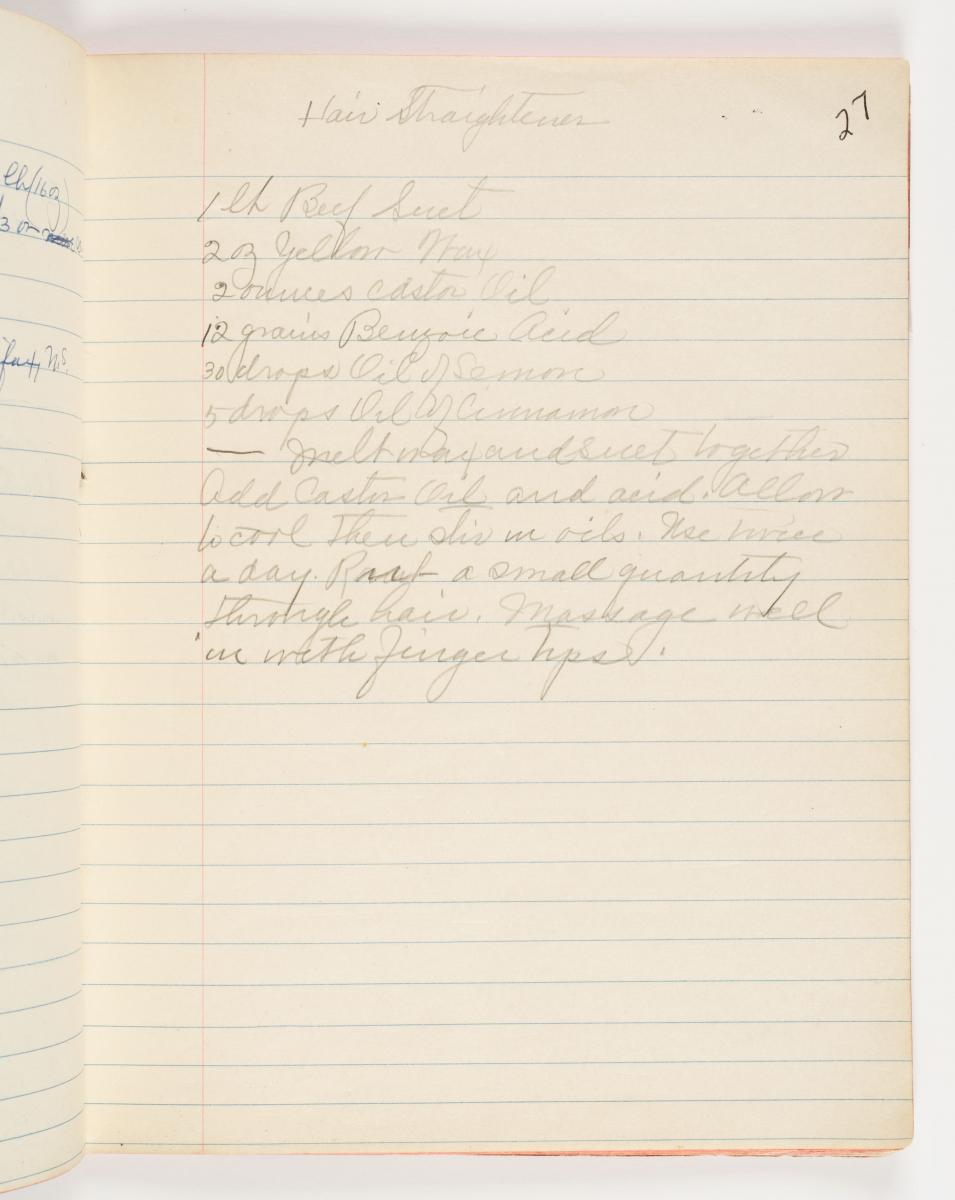 Hair Straightener
27
1 lb Beef Suet
2 oz Yellow Wax
2 ounces Castor Oil
12 grains Benzoic Acid
30 drops Oil of Lemon
5 drops Oil of Cinnamon
— Melt wax and suet together
Add Castor Oil and acid. Allow
to cool then stir in oils. Use twice
a day. a small quantity
through hair. Massage well
in with finger tips.
lb (16 oz)
3 oz
fax, N.S.